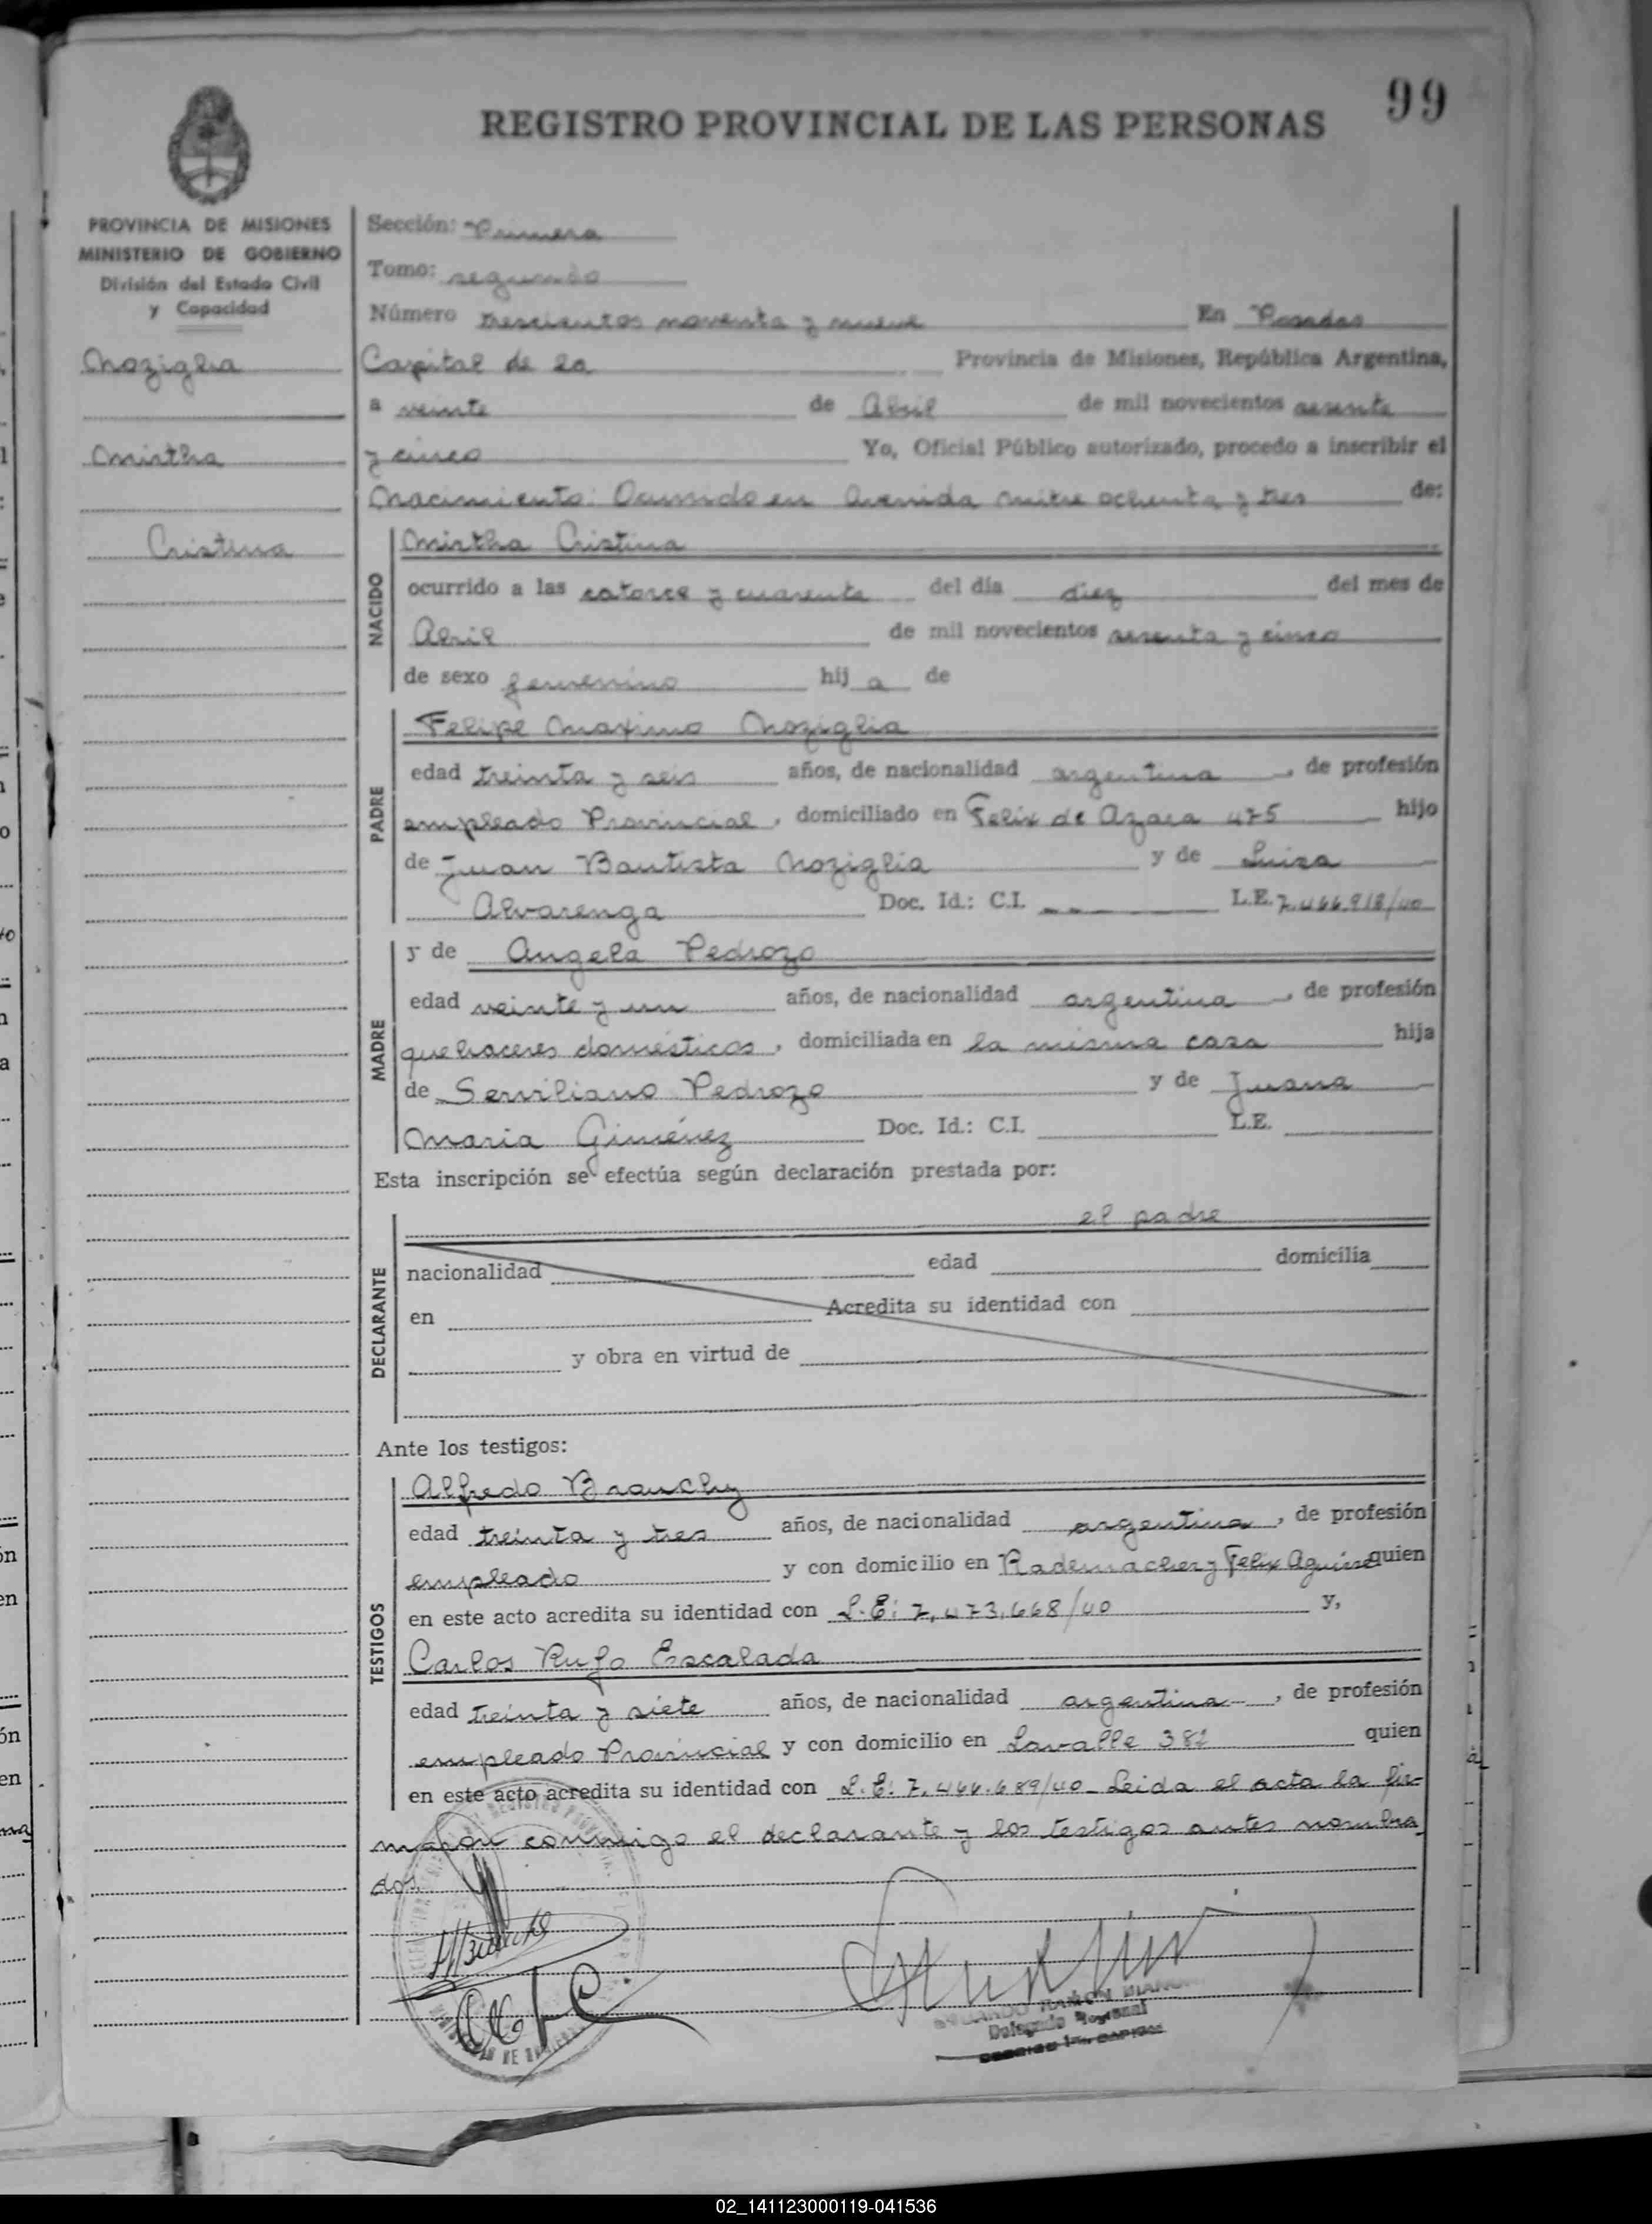 99
REGISTRO PROVINCIAL DE LAS PERSONAS
PROVINCIA DE MISIONES
MINISTERIO DE GOBIERNO
División del Estado Civil
y Capacidad
Noziglia
Mirtha
Cristina
Sección: Primera
Tomo: segundo
Número trescientos noventa y nueve En Posadas
Capital de la Provincia de Misiones, República Argentina,
a veinte de Abril de mil novecientos sesenta
y cinco Yo, Oficial Público autorizado, procedo a inscribir el
Nacimiento: Ocurrido en Avenida Mitre ochenta y tres de:
NACIDO
Mirtha Cristina
ocurrido a las catorce y cuarenta del día diez del mes de
Abril de mil novecientos sesenta y cinco
de sexo femenino hij a de
PADRE
Felipe Maximo Noziglia
edad treinta y seis años, de nacionalidad argentina, de profesión
empleado Provincial, domiciliado en Felix de Azara 475 hijo
de Juan Bautista Noziglia y de Luisa
Alvarenga Doc. Id.: C.I. L.E. 7.466.918/40
MADRE
y de Angela Pedrozo
edad veinte y un años, de nacionalidad argentina, de profesión
quehaceres domésticos, domiciliada en la misma casa hija
de Serviliano Pedrozo y de Juana
Maria Giménez Doc. Id.: C.I. L.E.
Esta inscripción se efectúa según declaración prestada por:
DECLARANTE
el padre
nacionalidad edad domicilia
en Acredita su identidad con
y obra en virtud de
Ante los testigos:
TESTIGOS
Alfredo Brauchy
edad treinta y tres años, de nacionalidad argentina, de profesión
empleado y con domicilio en Rademacher y Felix Aguirre quien
en este acto acredita su identidad con L.E: 7,473,668/40 y,
Carlos Rufo Escalada
edad treinta y siete años, de nacionalidad argentina, de profesión
empleado Provincial y con domicilio en Lavalle 382 quien
en este acto acredita su identidad con L.E: 7,466.689/40_ Leida el acta la fir-
maron conmigo el declarante y los testigos antes nombra
dos.
RAMON
Delegado Regional
02_141123000119-041536